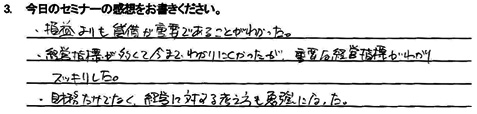 3. 今日のセミナーの感想をお書きください。
・損益よりも貸借が重要であることがわかった。
・経営指標が多くて今までわかりにくかったが、重要な経営指標がわかり
スッキリした。
・財務だけでなく、経営に対する考え方も勉強になった。